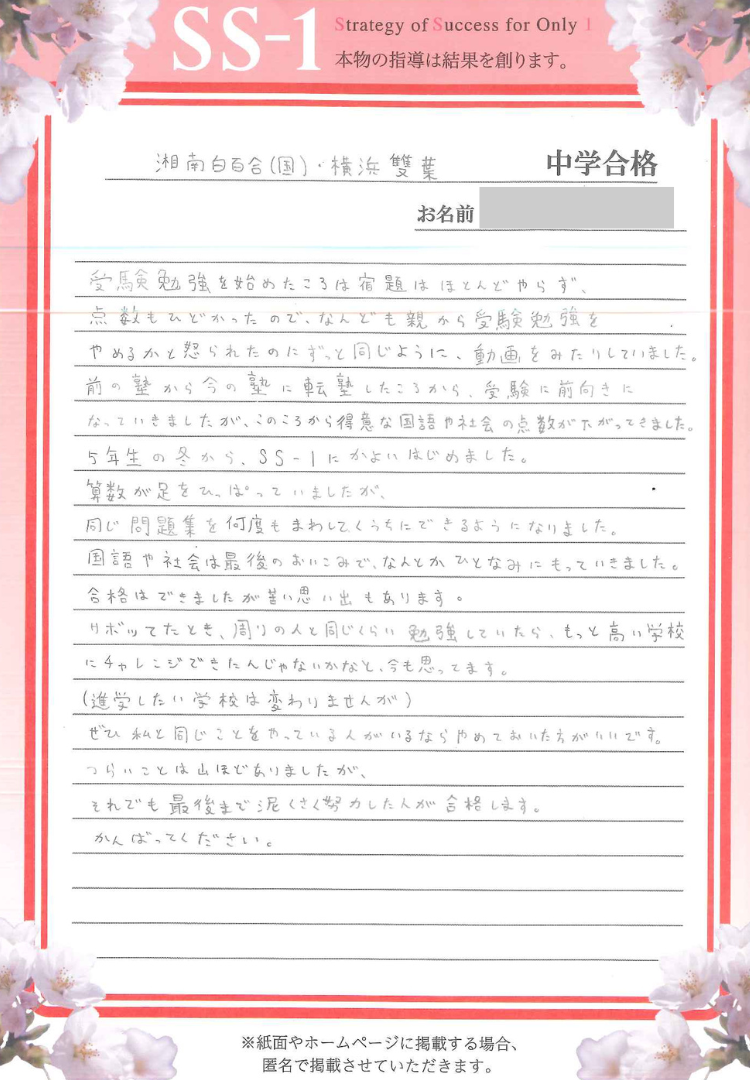 SS-1
Strategy of Success for Only 1
本物の指導は結果を創ります。
湘南白百合(国)・横浜雙葉 中学合格
お名前
受験勉強を始めたころは宿題はほとんどやらず、
点数もひどかったので、なんども親から受験勉強を
やめるかと怒られたのにずっと同じように、動画をみたりしていました。
前の塾から今の塾に転塾したころから、受験に前向きに
なっていきましたが、このころから得意な国語や社会の点数がたがってきました。
5年生の冬から、SS-1にかよいはじめました。
算数が足をひっぱっていましたが、
同じ問題集を何度もまわしてくうちにできるようになりました。
国語や社会は最後のおいこみで、なんとかひとなみにもっていきました。
合格はできましたが苦い思い出もあります。
サボッてたとき、周りの人と同じくらい勉強していたら、もっと高い学校
にチャレンジできたんじゃないかなと、今も思ってます。
(進学したい学校は変わりませんが)
ぜひ私と同じことをやっている人がいるならやめておいた方がいいです。
つらいことは山ほどありましたが、
それでも最後まで泥くさく努力した人が合格します。
がんばってください。
※紙面やホームページに掲載する場合、
匿名で掲載させていただきます。